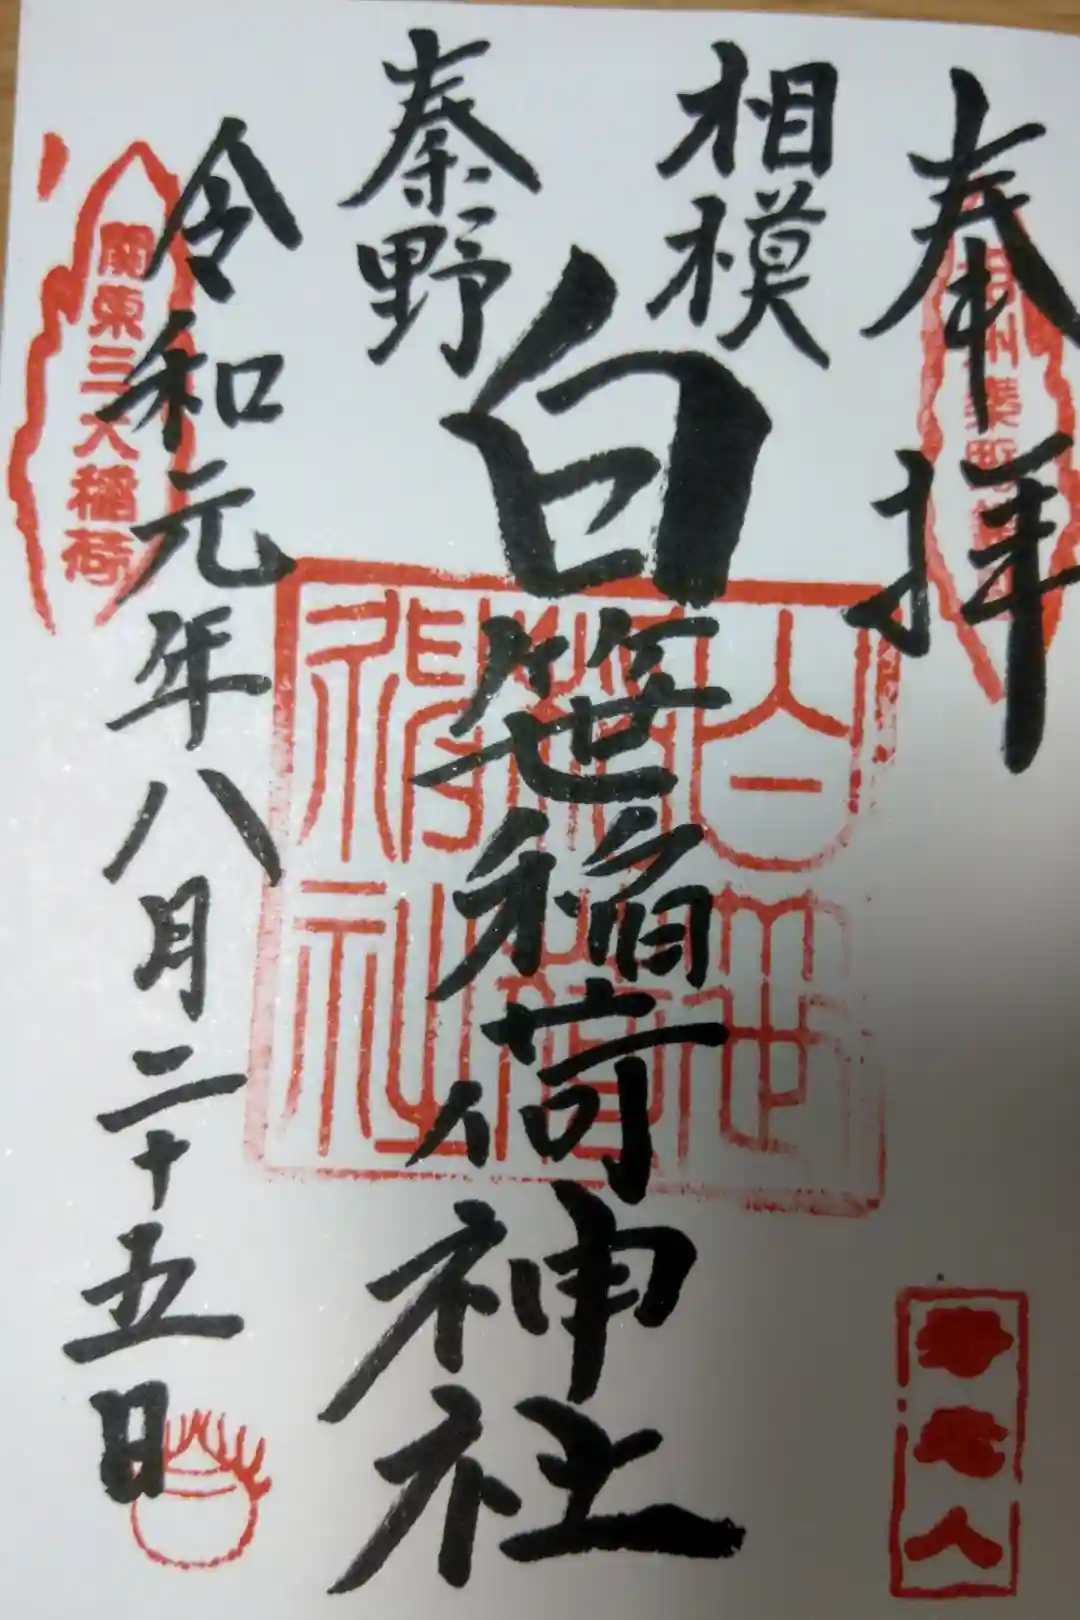 奉拝
相模
秦野
白笹稲荷神社
令和元年八月二十五日
關東三大稲荷
白笹稲荷神社